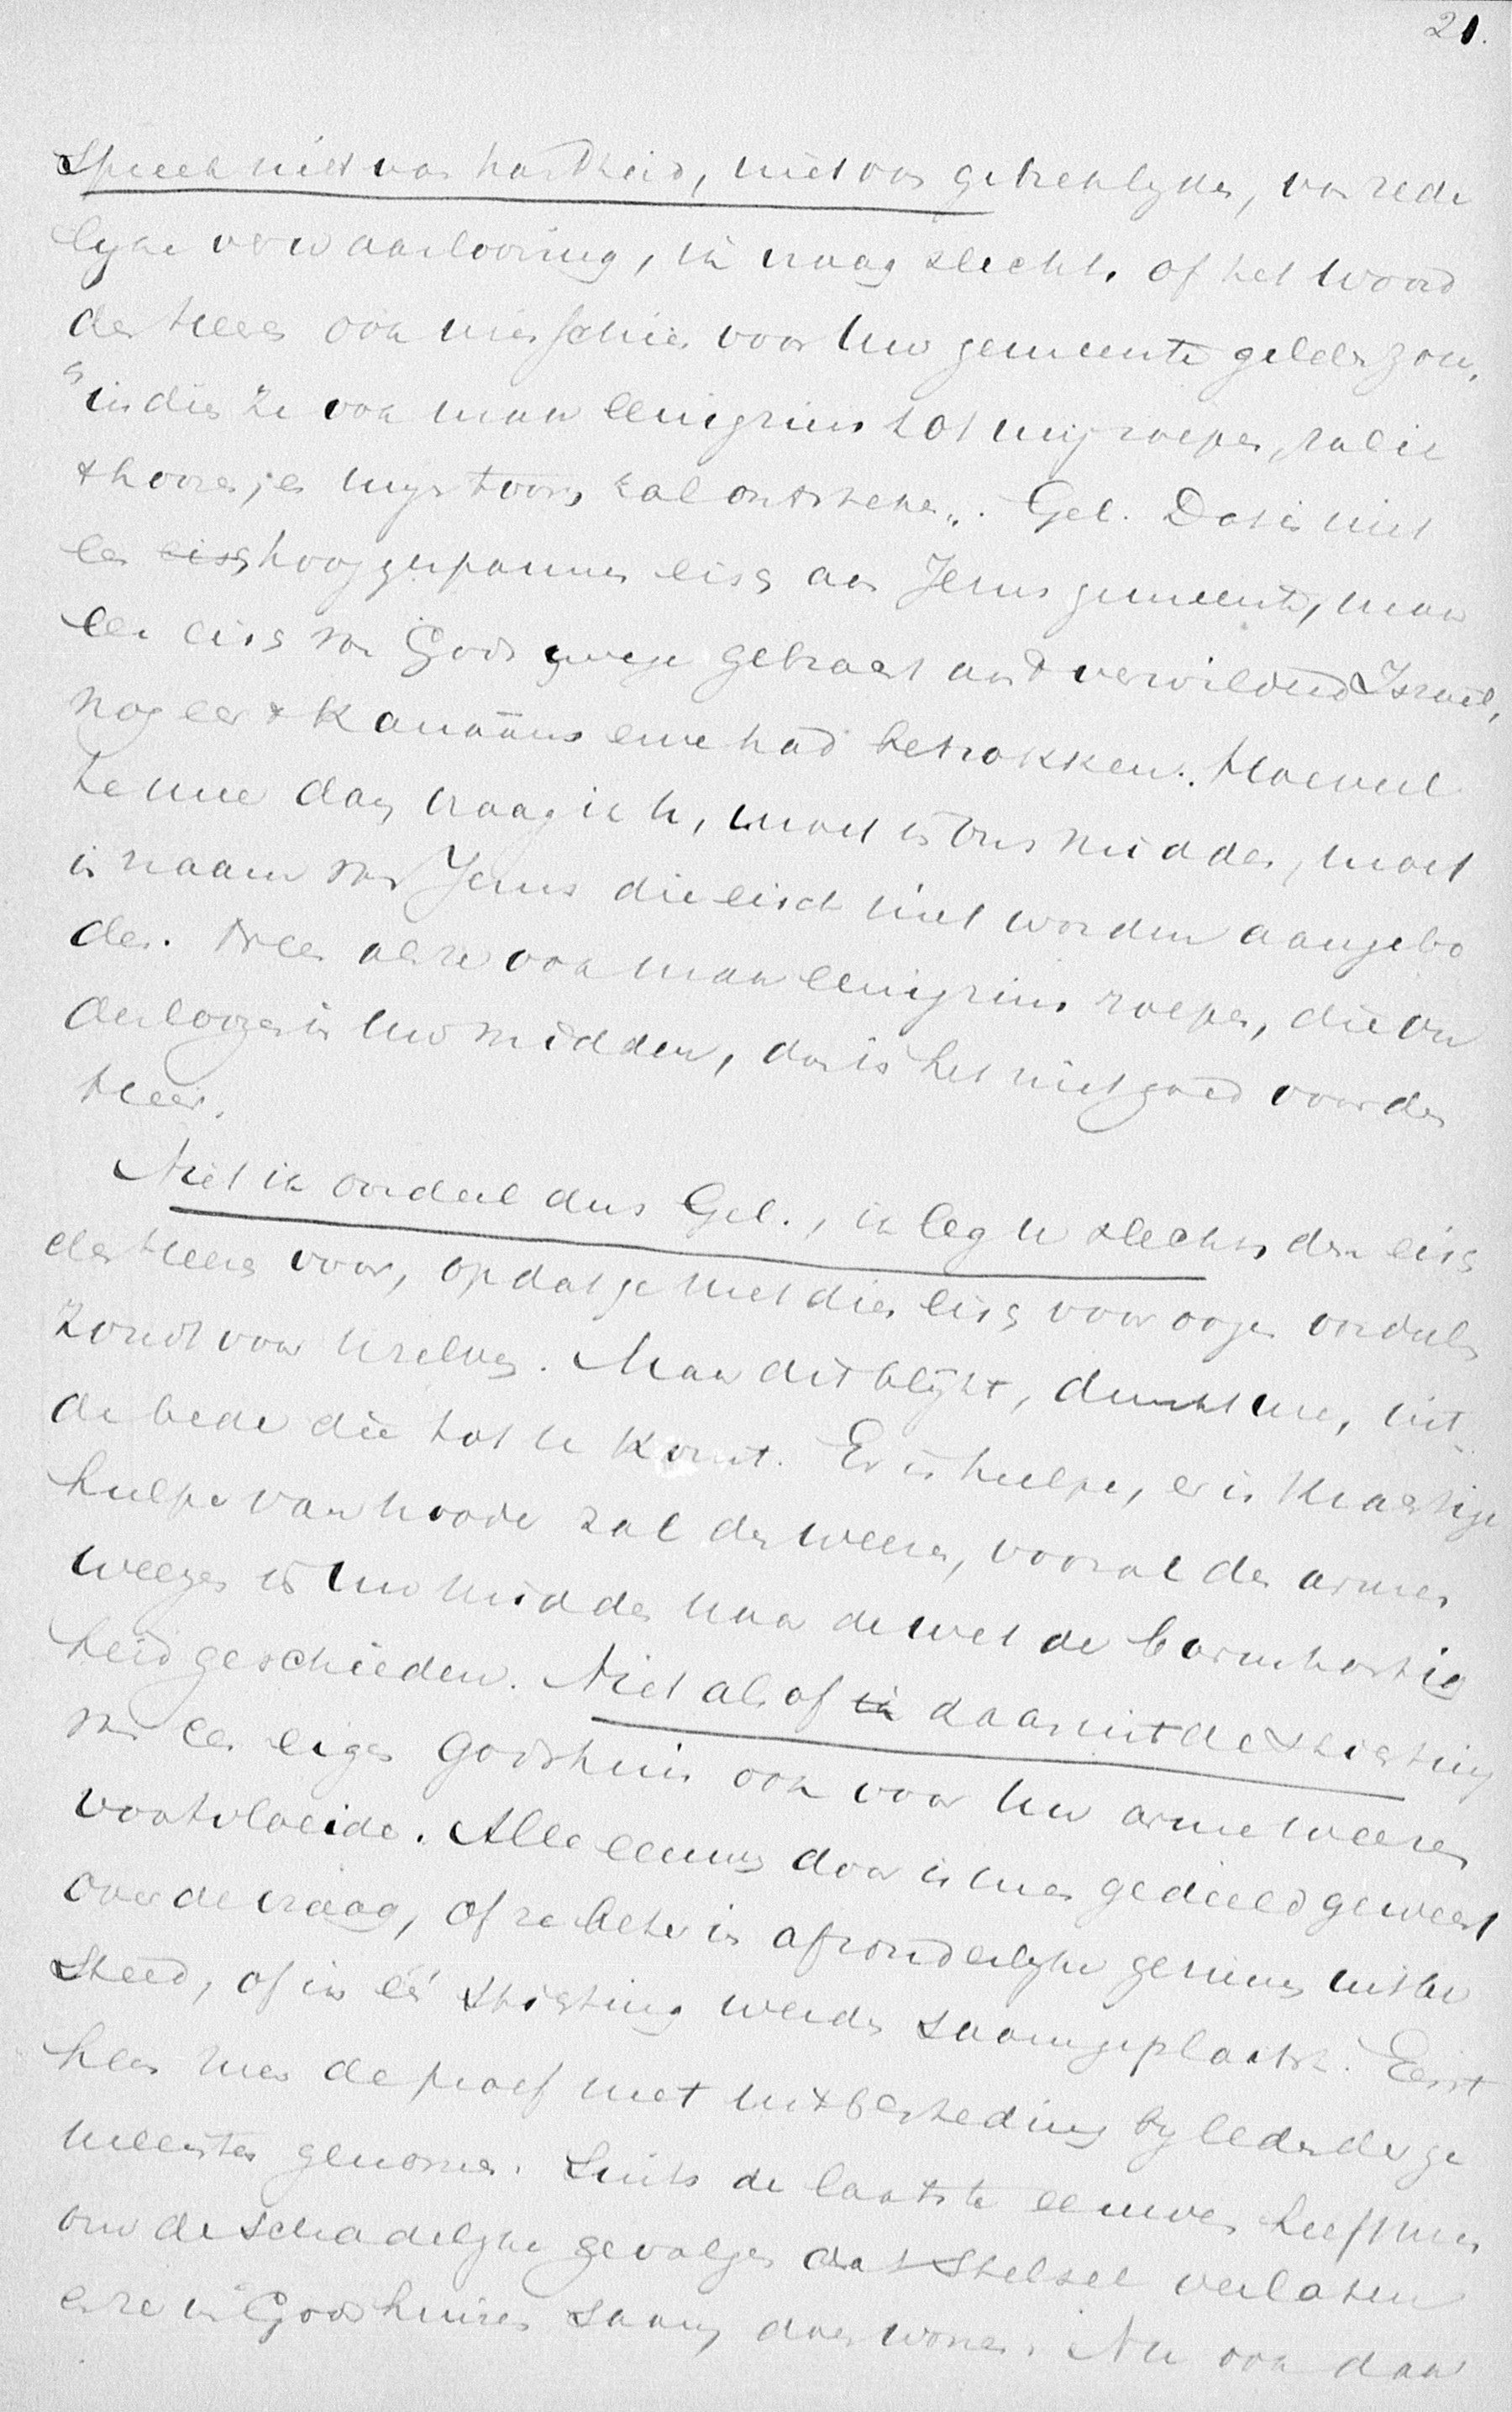 21.
Spreek niet van hardheid, niet van gebreklyden, van zede
lyke verwaarloozing, ik vraag slechts of het woord
des Heeren ook misschien voor Uw gemeente gelden zou,
"indien ze ook maar eenigzins tot mij roepen, zal ik
't hooren, en mijn toorn zal ontsteken". Gel. Dat is niet
een eisch hooggespannen eisch aan Jezus gemeente, maar
een eisch van Gods wege gebracht aan 't verwilderd Israël,
nog eer 't Kanaäns erve had betrokken. Hoeveel
te meer dan, vraag ik U, moet in Ons midden, moet
in naam van Jezus die eisch niet worden aangebo
den. Neen als ze ook maar eenigzins roepen, die ou
derloozen in Uw midden, dan is het niet goed voor den
Heer.
Niet ik oordeel dus Gel., ik leg U slechts den eisch
des Heeren voor, opdat ge met dien eisch voor oogen oordeelen
zoudt voor Uzelven. Maar dit blijkt, dunkt me, uit
de bede die tot U komt. Er is hulpe, er is krachtige
hulpe van noode zal den weezen, vooral den armen
weezen in Uw midden naar de wet der barmhartig
heid geschieden. Niet alsof in daaruit de stichting
van een eigen Godshuis ook voor Uw arme weezen
voortvloeide. Alle eeuwen door is men gedeeld geweest
over de vraag, of ze beter in afzonderlyke gezinnen uitbe
steed, of in één stichting werden saamgeplaatst. Eerst
heeft men de proef met uitbesteding by leden der ge
meenten genomen. Sinds de laatste eeuwen heeft men
om de schadelyke gevolgen dat stelsel verlaten
en ze in Godshuizen saam doen wonen. Nu ook daar